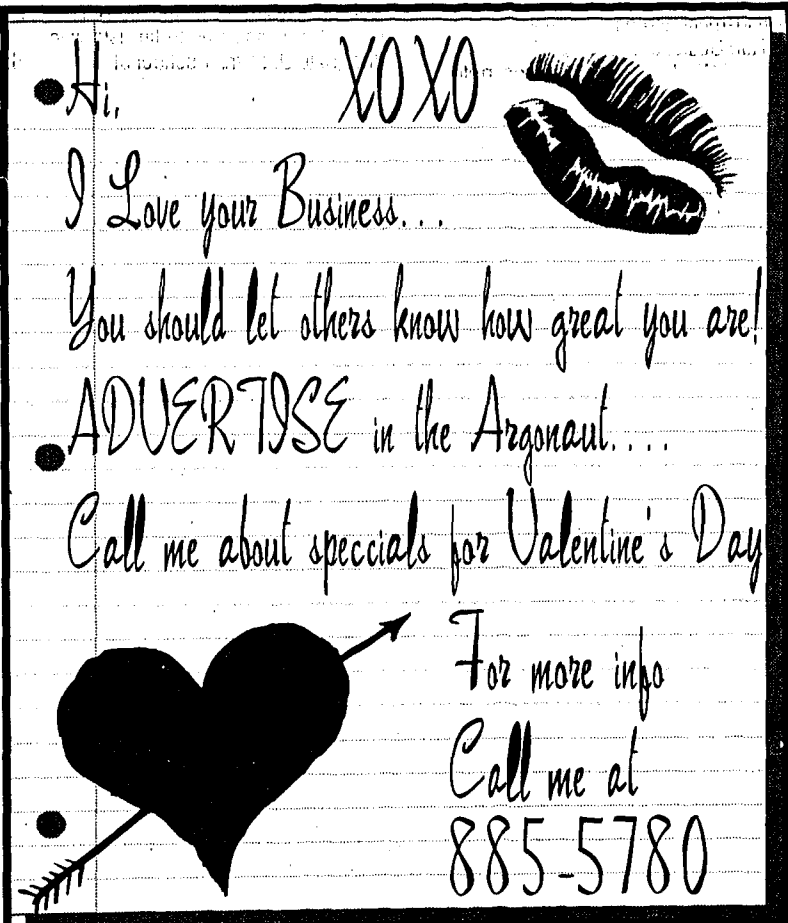 Hi, XOXO
I Love your Business...
You should let others know how great you are!
ADVERTISE in the Argonaut....
Call me about speccials for Valentine's Day
For more info
Call me at
885-5780